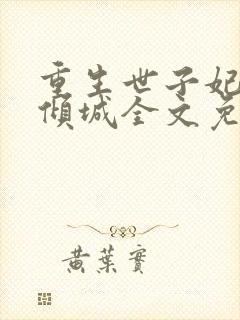 重生世子妃
倾城全文免
黄葉實